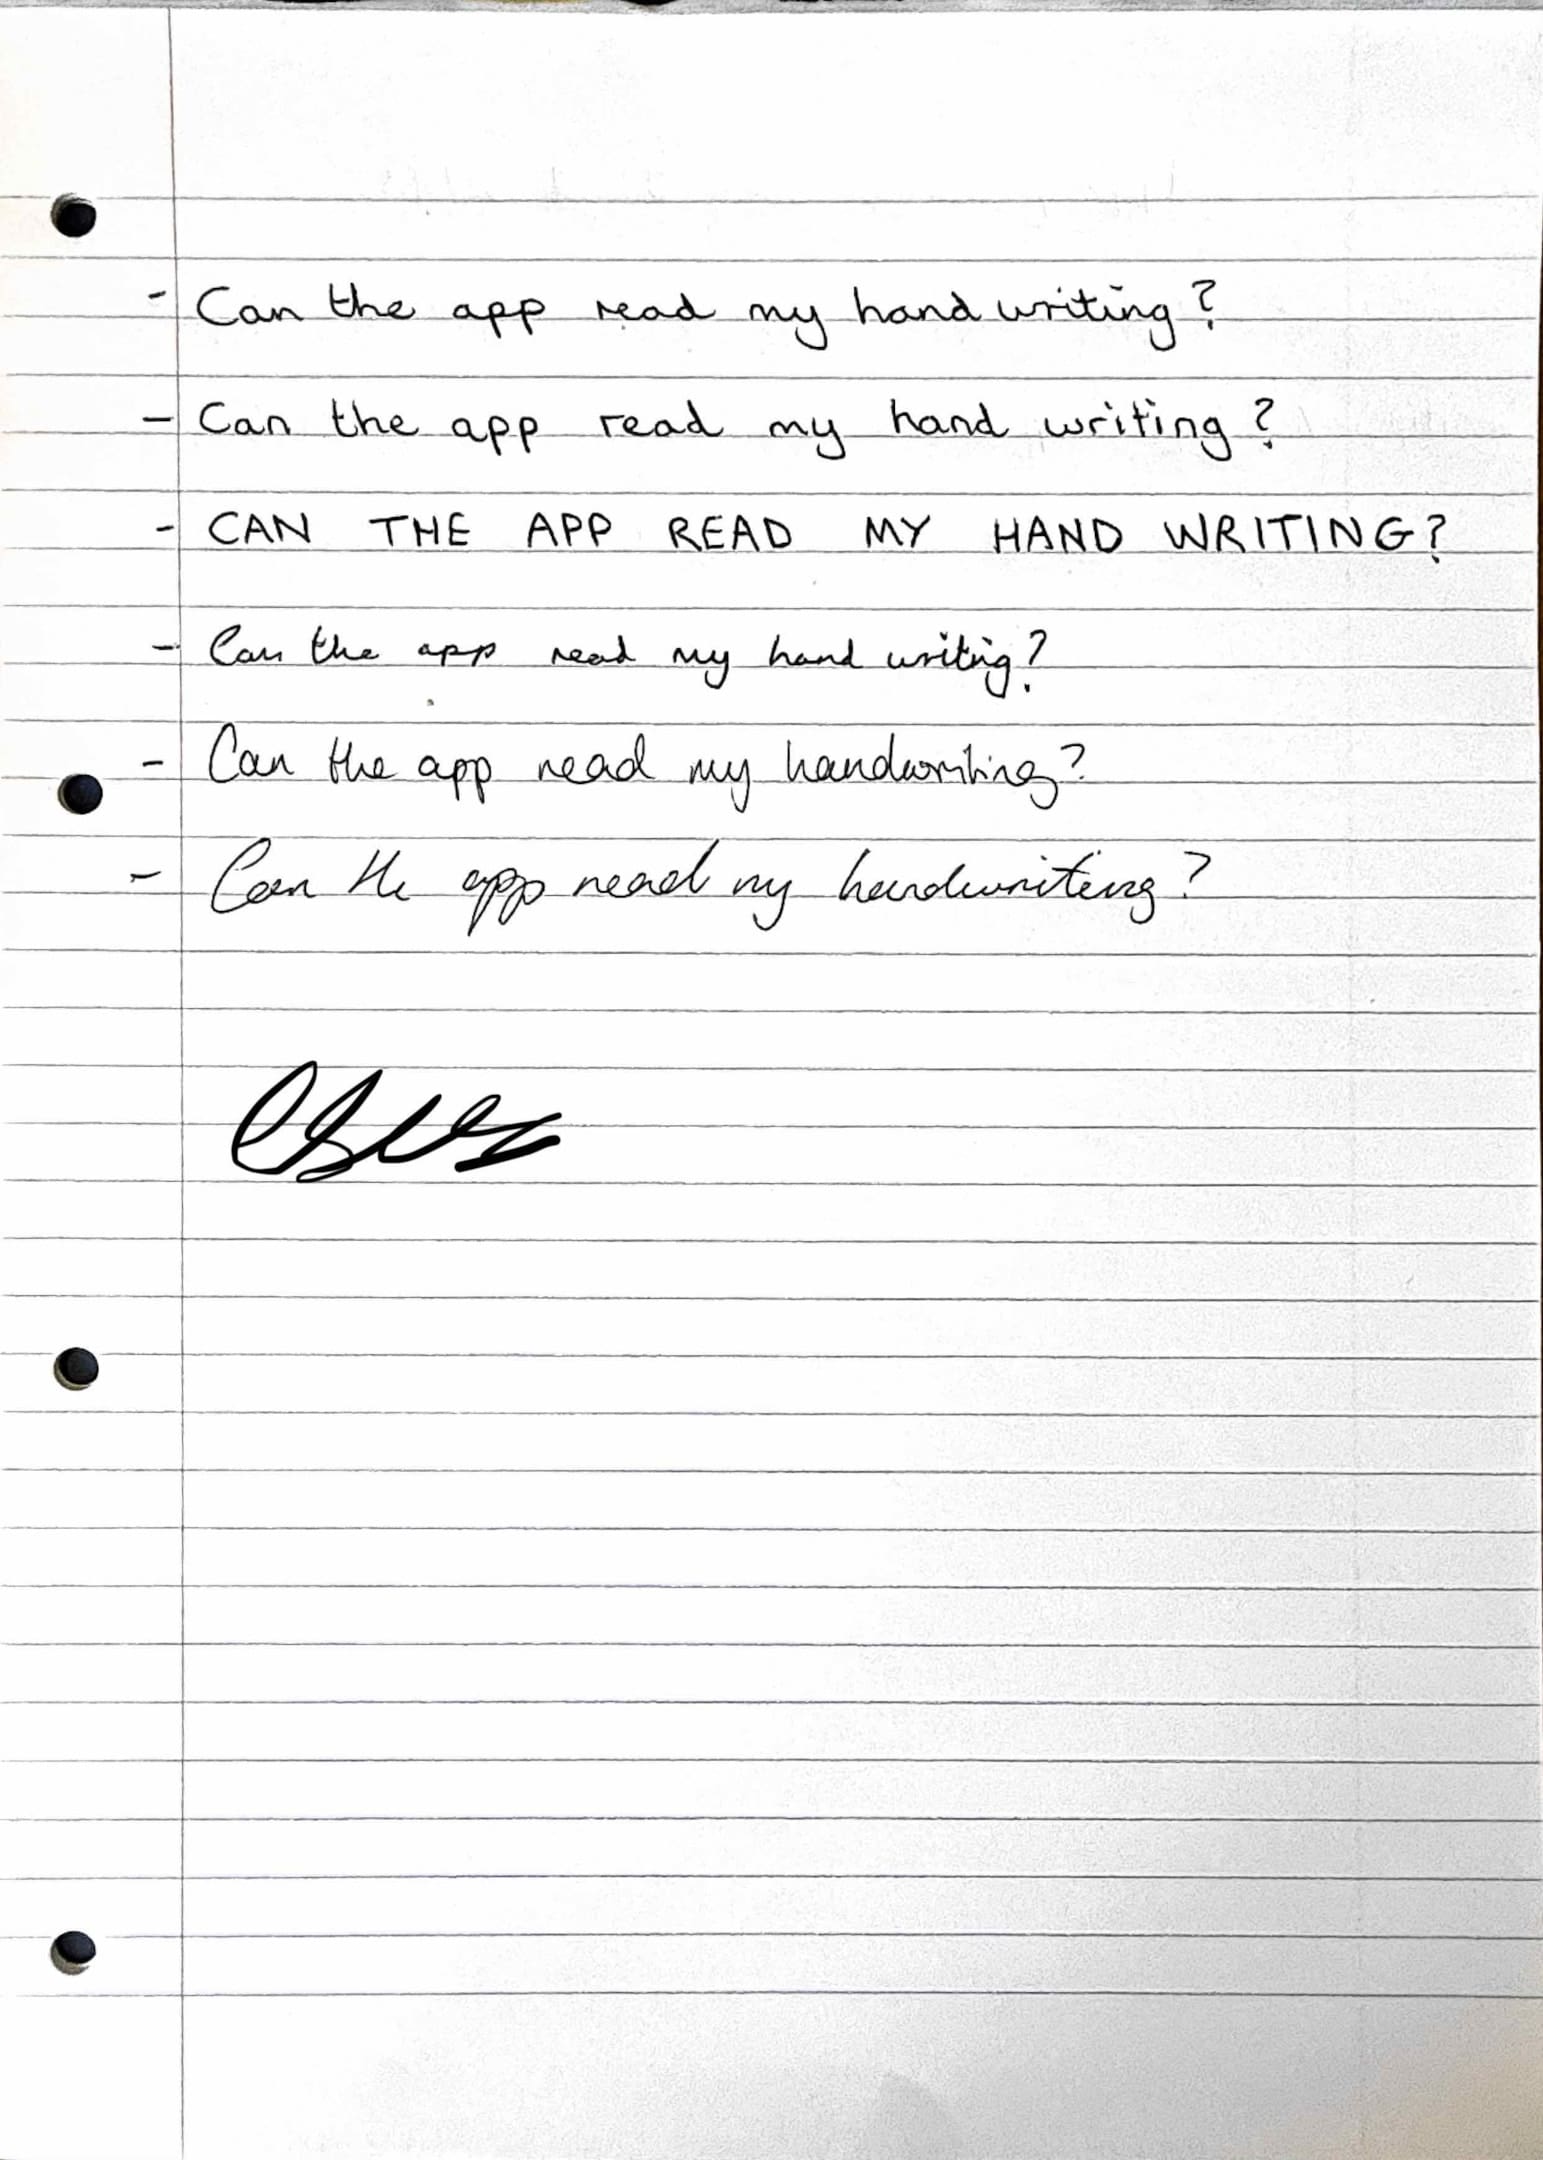 - Can the app read my hand writing?
- Can the app read my hand writing?
- CAN THE APP READ MY HAND WRITING?
- Can the app read my hand writing?
- Can the app read my handwriting?
- Can the app read my handwriting?